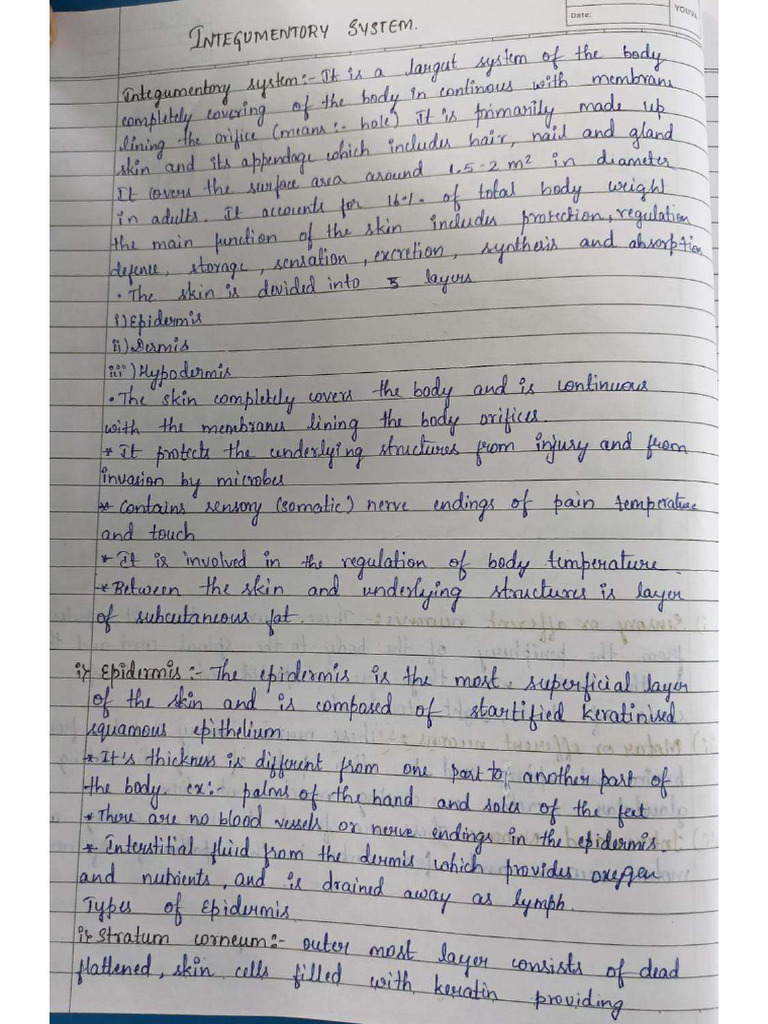 Date:
YOUVA
INTEGUMENTORY SYSTEM.
Integumentory system:- It is a largut system of the body
completely covering of the body in continous with membrane
lining the orifice (means:- hole) It is primarily made up
skin and its appendage which includes hair, nail and gland
It covers the surface area around 1.5-2 m² in diameter
in adults. It accounts for 16% of total body weight
the main function of the skin includes protection, regulation
defence, storage, sensation, excretion, synthesis and absorption
• The skin is devided into 3 layers
i) Epidermis
ii) Dermis
iii) Hypodermis
• The skin completely covers the body and is continuous
with the membranes lining the body orifices.
* It protects the underlying structures from injury and from
invasion by microbes
* Contains sensory (somatic) nerve endings of pain temperature
and touch
* It is involved in the regulation of body temperature.
* Between the skin and underlying structures is layer
of subcutaneous fat.
i) Epidermis:- The epidermis is the most superficial layer
of the skin and is composed of startified keratinised
squamous epithelium
* It's thickness is different from one part to another part of
the body. ex:- palms of the hand and soles of the feet
* There are no blood vessels or nerve endings in the epidermis
* Interstitial fluid from the dermis, which provides oxygen
and nutrients, and is drained away as lymph.
Types of Epidermis
i) Stratum corneum:- outer most layer consists of dead
flattened, skin cells filled with keratin providing